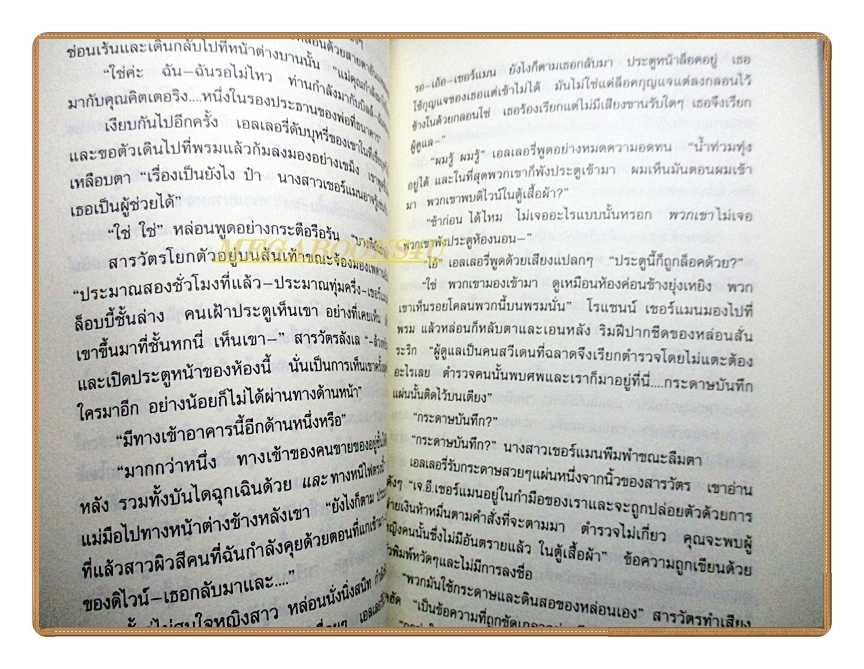 ซ่อนเร้นและเดินกลับไปที่หน้าต่างบานนั้น "แม่คุณกำลัง
"ใช่ค่ะ ฉัน–ฉันรอไม่ไหว ท่านกำลังมากับบิลล์–
มากับคุณคิตเตอริง....หนึ่งในรองประธานของพ่อที่ธนาคาร"
เงียบกันไปอีกครั้ง เอลเลอรี่ดับบุหรี่ของเขาในที่เขี่ย
และขอตัวเดินไปที่พรมแล้วก้มลงมองอย่างเขม็ง เขาพูดขึ้น
เหลือบตา "เรื่องเป็นยังไง ป๋า นางสาวเชอร์แมนอาจรู้เช่นกัน
เธอเป็นผู้ช่วยได้"
"ใช่ ใช่" หล่อนพูดอย่างกระตือรือร้น
สารวัตรโยกตัวอยู่บนส้นเท้าขณะจ้องมองเพดาน
"ประมาณสองชั่วโมงที่แล้ว–ประมาณทุ่มครึ่ง–เชอร์แมน
ล็อบบี้ชั้นล่าง คนเฝ้าประตูเห็นเขา อย่างที่เคยเห็น
เขาขึ้นมาที่ชั้นหกนี่ เห็นเขา–" สารวัตรลังเล
และเปิดประตูหน้าของห้องนี้ นั่นเป็นการเห็นเขาครั้ง
ใครมาอีก อย่างน้อยก็ไม่ได้ผ่านทางด้านหน้า"
"มีทางเข้าอาคารนี้อีกด้านหนึ่งหรือ"
"มากกว่าหนึ่ง ทางเข้าของคนขายของอยู่ชั้นใต้
หลัง รวมทั้งบันไดฉุกเฉินด้วย และทางหนีไฟตรงนี้
แม่มือไปทางหน้าต่างข้างหลังเขา "ยังไงก็ตาม
ที่แล้วสาวผิวสีคนที่ฉันกำลังคุยด้วยตอนที่แกเข้ามา–
ของดิไวน์–เธอกลับมาและ...."
หญิงสาว หล่อนนั่งนิ่งสนิท
MEGABOOKS4U
รอ–เอ้อ–เชอร์แมน ยังไงก็ตามเธอกลับมา ประตูหน้าล็อคอยู่ เธอ
ใช้กุญแจของเธอแต่เข้าไม่ได้ มันไม่ใช่แค่ล็อคกุญแจแต่ลงกลอนไว้
ข้างในด้วยกลอนโซ่ เธอร้องเรียกแต่ไม่มีเสียงขานรับใดๆ เธอจึงเรียก
ผู้ดูแล–"
"ผมรู้ ผมรู้" เอลเลอรี่พูดอย่างหมดความอดทน "น้ำท่วมทุ่ง
อยู่ได้ และในที่สุดพวกเขาก็พังประตูเข้ามา ผมเห็นมันตอนผมเข้า
มา พวกเขาพบดิไวน์ในตู้เสื้อผ้า?"
"ช้าก่อน ได้ไหม ไม่เจออะไรแบบนั้นหรอก พวกเขาไม่เจอ
พวกเขาพังประตูห้องนอน–"
"โอ้" เอลเลอรี่พูดด้วยเสียงแปลกๆ "ประตูนี้ก็ถูกล็อคด้วย?"
"ใช่ พวกเขามองเข้ามา ดูเหมือนห้องค่อนข้างยุ่งเหยิง พวก
เขาเห็นรอยโคลนพวกนี้บนพรมนั่น" โรแซนน์ เชอร์แมนมองไปที่
พรม แล้วหล่อนก็หลับตาและเอนหลัง ริมฝีปากซีดของหล่อนสั่น
ระริก "ผู้ดูแลเป็นคนสวีเดนที่ฉลาดจึงเรียกตำรวจโดยไม่แตะต้อง
อะไรเลย ตำรวจคนนั้นพบศพและเราก็มาอยู่ที่นี่....กระดาษบันทึก
แผ่นนั้นติดไว้บนเตียง"
"กระดาษบันทึก?"
"กระดาษบันทึก?" นางสาวเชอร์แมนพึมพำขณะลืมตา
เอลเลอรี่รับกระดาษสวยๆแผ่นหนึ่งจากนิ้วของสารวัตร เขาอ่าน
ดังๆ "เจ.อี.เชอร์แมนอยู่ในกำมือของเราและจะถูกปล่อยตัวด้วยการ
จ่ายเงินห้าหมื่นตามคำสั่งที่จะตามมา ตำรวจไม่เกี่ยว คุณจะพบผู้
หญิงคนนั้นซึ่งไม่มีอันตรายแล้ว ในตู้เสื้อผ้า" ข้อความถูกเขียนด้วย
ตัวพิมพ์หวัดๆและไม่มีการลงชื่อ
"พวกมันใช้กระดาษและดินสอของหล่อนเอง" สารวัตรทำเสียง
"เป็นข้อความที่ถูกขัดเกลา